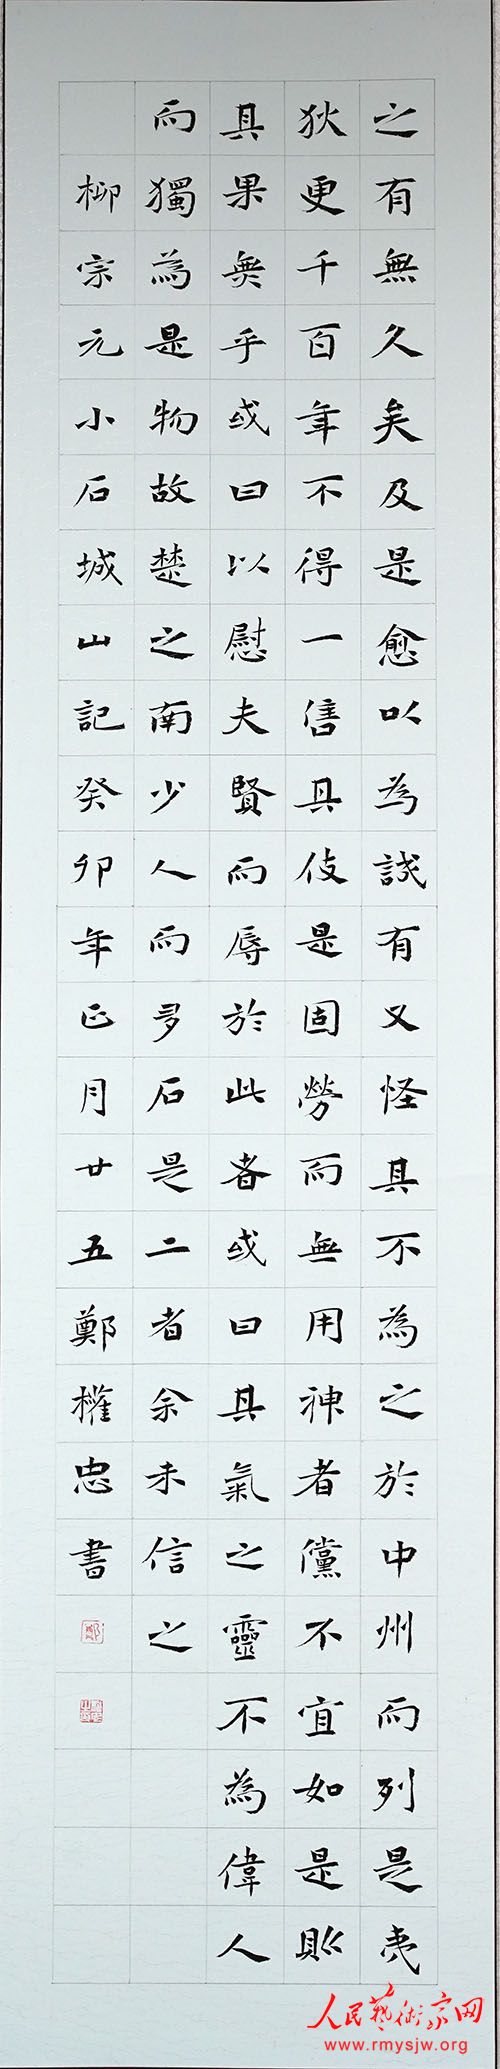 之有無久矣及是愈以為誠有又怪其不為之於中州而列是夷
狄更千百年不得一售其伎是固勞而無用神者儻不宜如是則
其果無乎或曰以慰夫賢而辱於此者或曰其氣之靈不為偉人
而獨為是物故楚之南少人而多石是二者余未信之
柳宗元小石城山記癸卯年正月廿五鄭權忠書
鄭
人民藝術家网
www.rmysjw.org